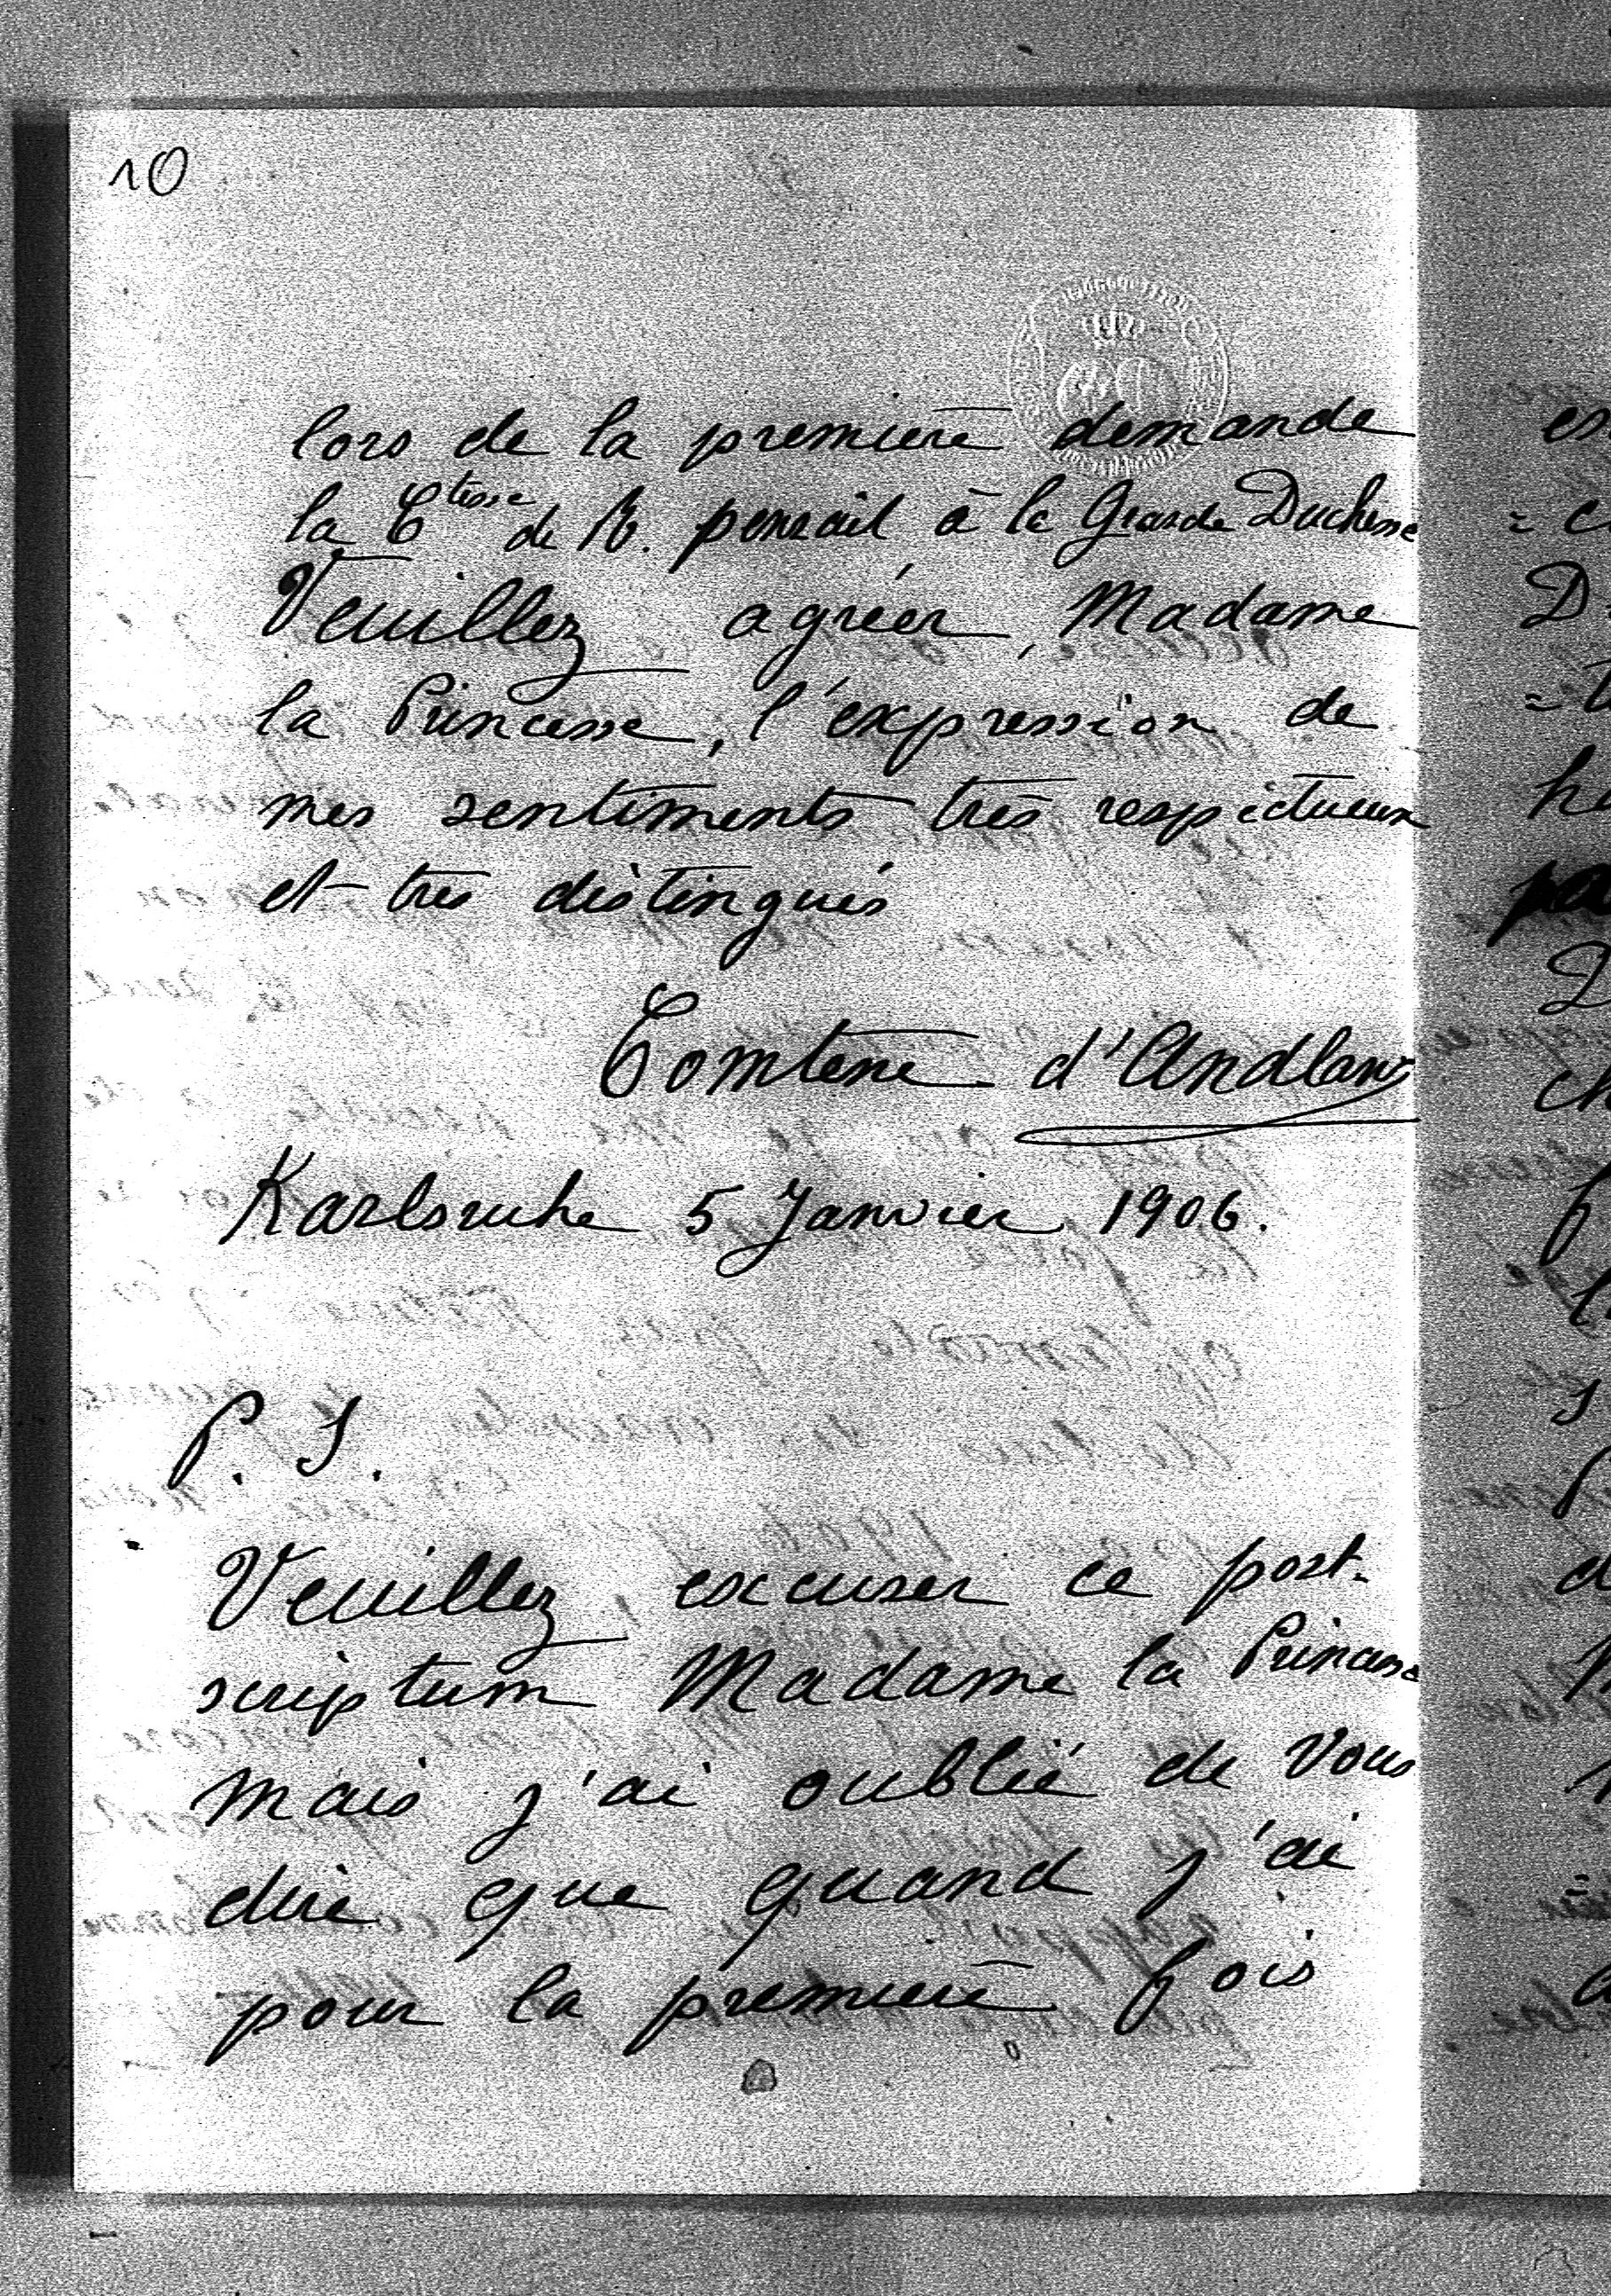 10
lors de la première demande
la Ctesse de R. pensait à la Grande Duchesse
Veuillez agréer, Madame
la Princesse, l'expression de
mes sentiments très respectueux
et très distingués
Comtesse d'Andlaw
Karlsruhe 5 Janvier 1906.
P. S.
Veuillez excuser ce post-
scriptum Madame la Princesse
mais j'ai oublié de vous
dire que quand j'ai
pour la première fois